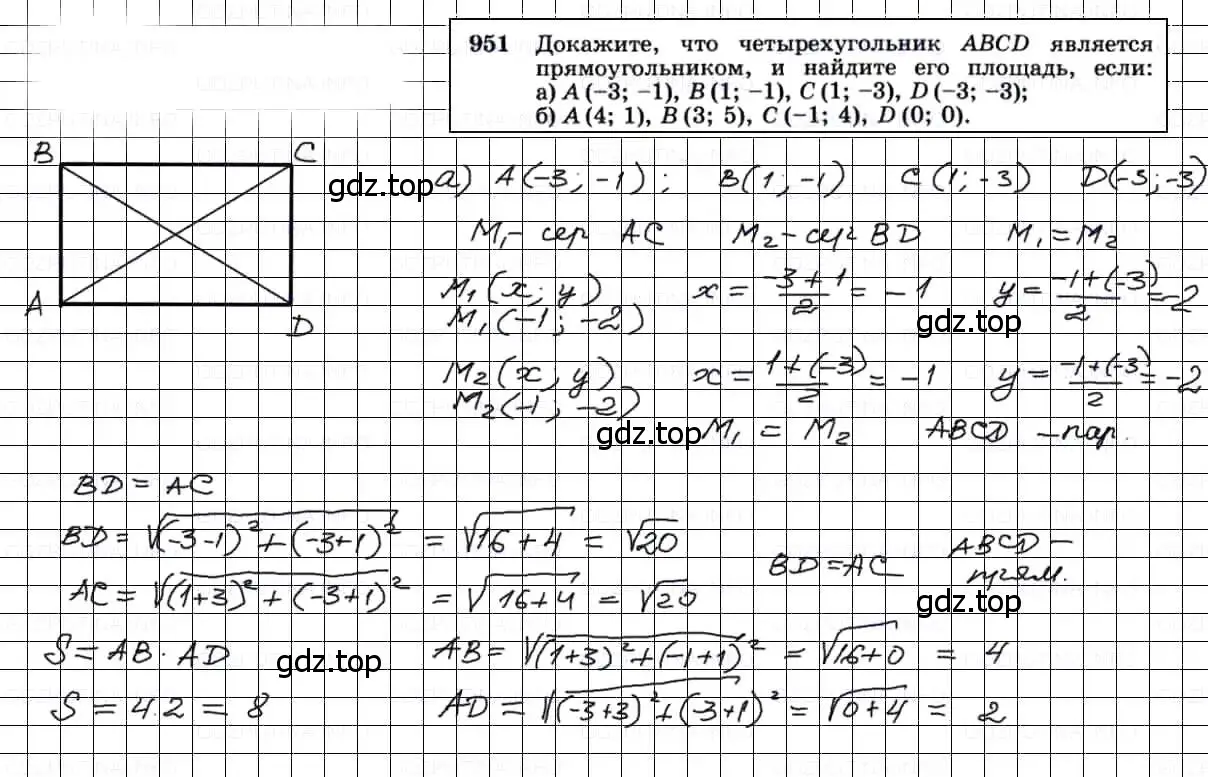 951 Докажите, что четырехугольник ABCD является
прямоугольником, и найдите его площадь, если:
а) A (−3; −1), B (1; −1), C (1; −3), D (−3; −3);
б) A (4; 1), B (3; 5), C (−1; 4), D (0; 0).
B C
A D
gdz.top
а) A(−3; −1); B(1; −1) C(1; −3) D(−3; −3)
M₁ − сер AC M₂ − сер BD M₁ = M₂
M₁(x; y) x = (−3+1)/2 = −1 y = (−1+(−3))/2 = −2
M₁(−1; −2)
gdz.top
M₂(x; y) x = (1+(−3))/2 = −1 y = (−1+(−3))/2 = −2
M₂(−1; −2)
gdz.top M₁ = M₂ ABCD − пар.
BD = AC
BD = √((−3−1)² + (−3+1)²) = √(16+4) = √20
BD = AC ABCD − прям.
AC = √((1+3)² + (−3+1)²) = √(16+4) = √20
gdz.top
S = AB · AD AB = √((1+3)² + (−1+1)²) = √(16+0) = 4
gdz.top
S = 4·2 = 8 AD = √((−3+3)² + (−3+1)²) = √(0+4) = 2